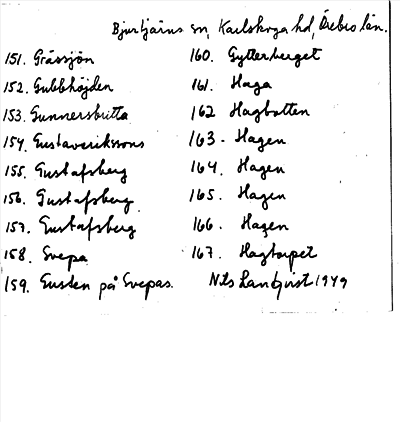 Bjurtjärns sn, Karlskoga hd, Örebro län.
151. Gråssjön
152. Gubbhöjden
153. Gunnersbritta
154. Gustaverikssons
155. Gustafsberg
156. Gustafsberg
157. Gustafsberg
158. Svepa
159. Gusten på Svepas.
160. Gytterberget
161. Haga
162 Hagbotten
163. Hagen
164. Hagen
165. Hagen
166. Hagen
167. Hagtorpet
Nils Landqvist 1949